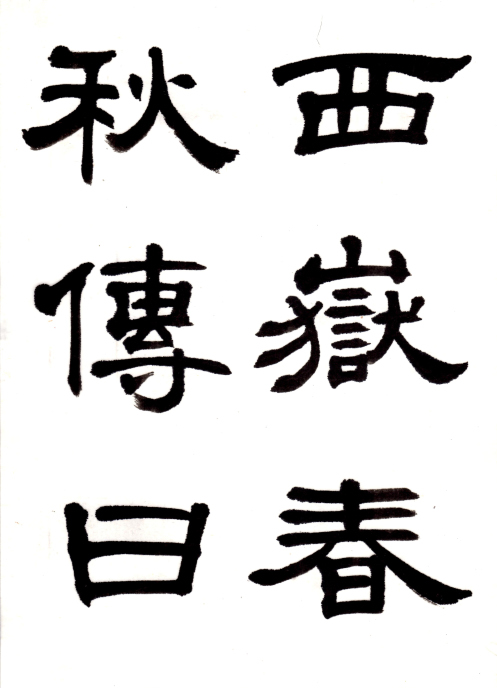 西嶽春
秋傳曰